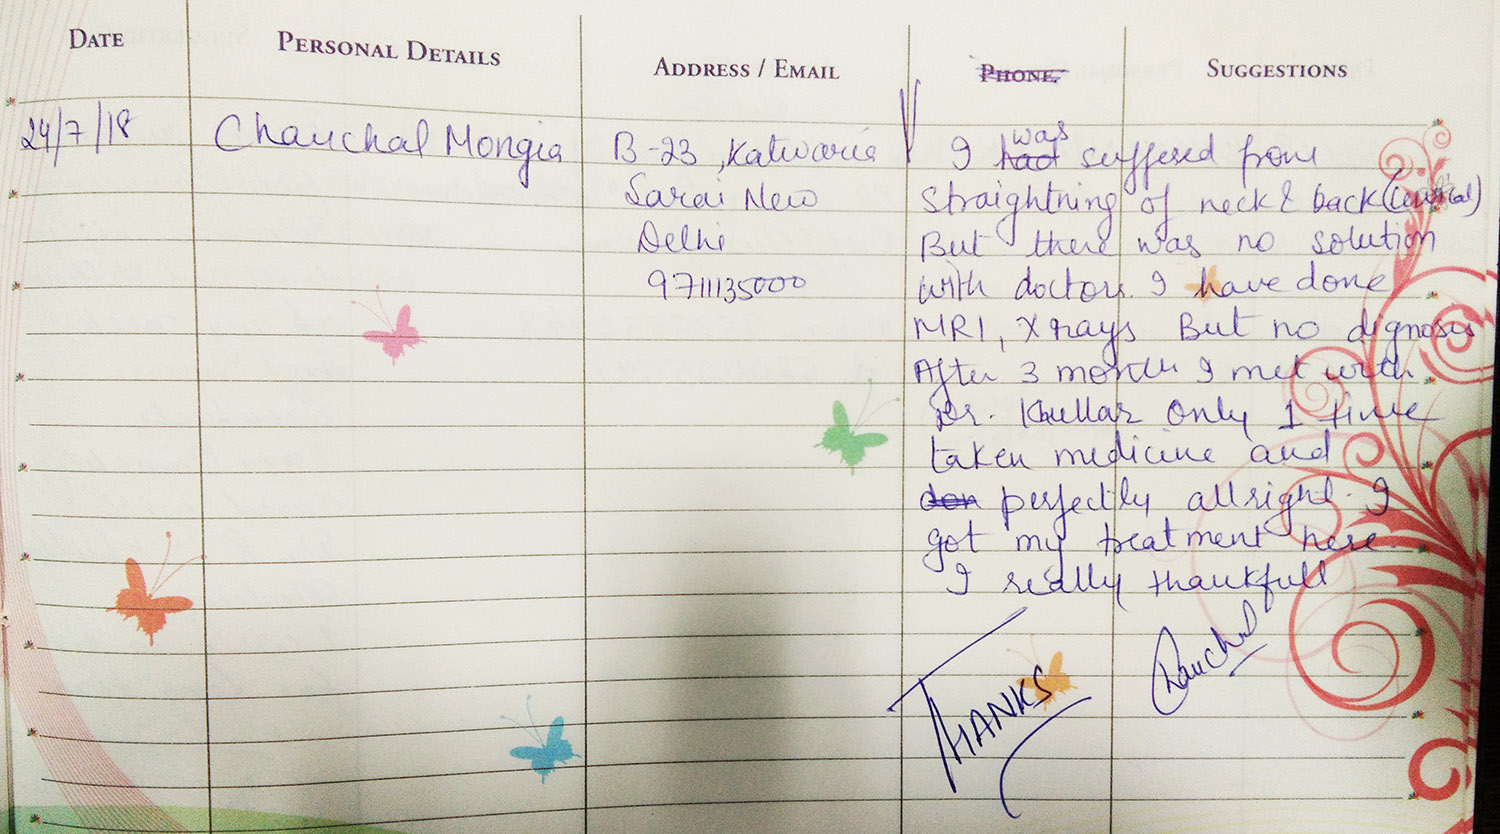 DATE PERSONAL DETAILS ADDRESS / EMAIL PHONE. SUGGESTIONS
24/7/18
Chanchal Mongia
B-23, Katwaria
Sarai New
Delhi
9711135000
I had was suffered from
straightning of neck & back (Cervical)
But there was no solution
with doctors. I have done
MRI, X rays But no dignosis
After 3 month I met with
Dr. Khullar Only 1 time
taken medicine and
don perfectly allright. I
got my treatment here
I really thankfull
THANKS
Chanchal